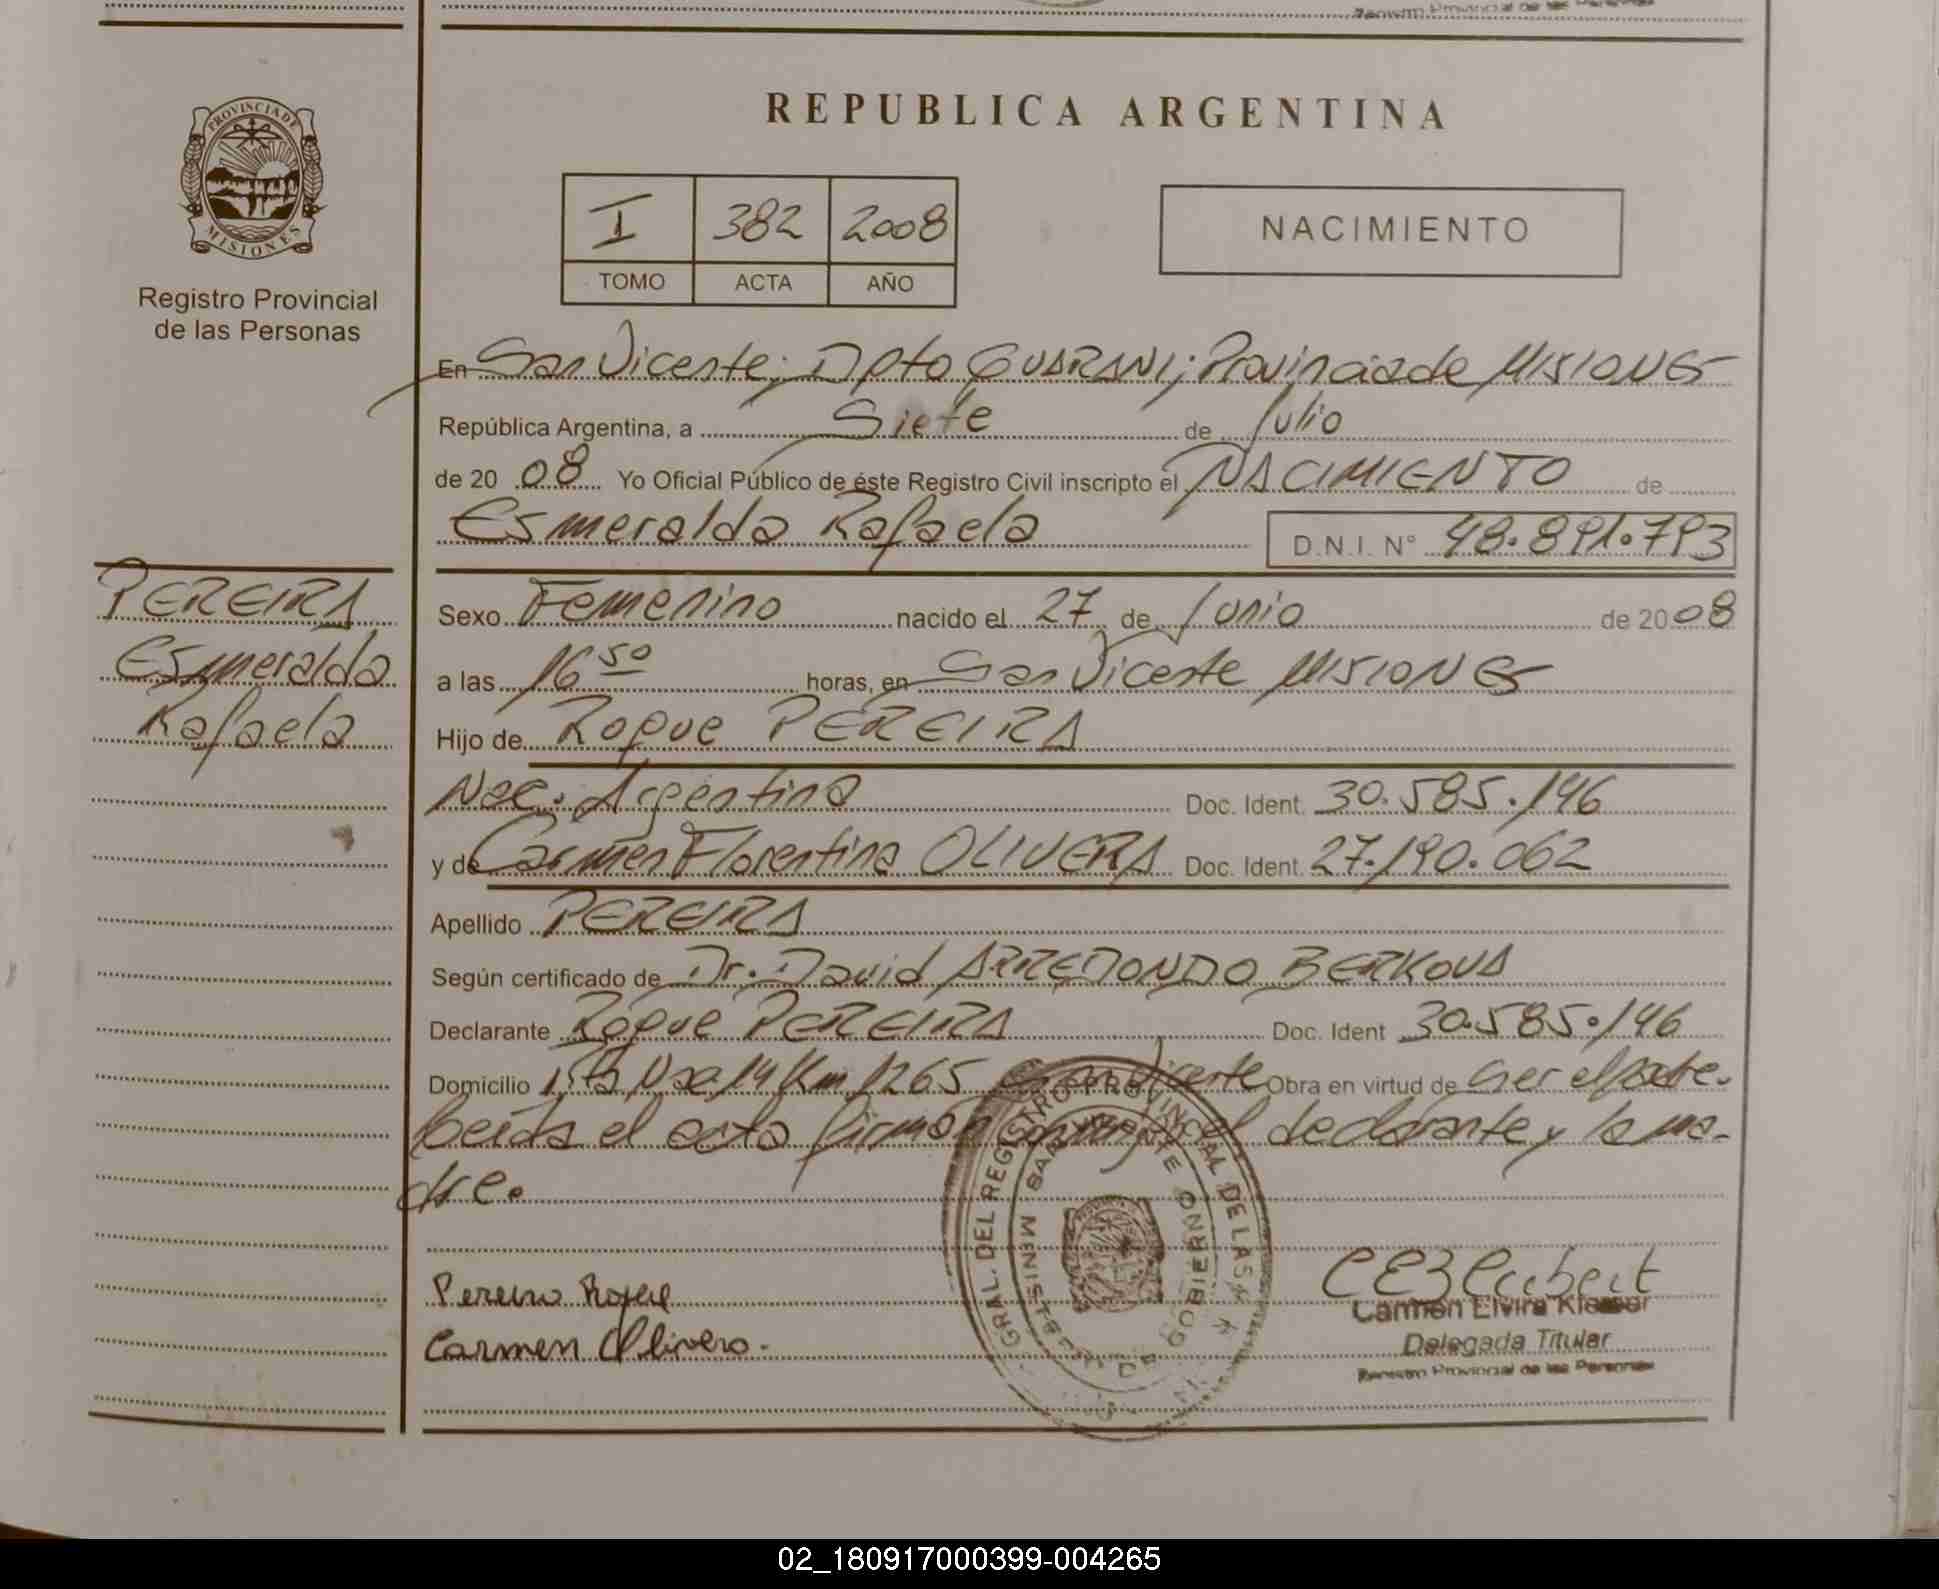 Registro Provincial de las Personas
REPUBLICA ARGENTINA
PROVINCIA DE
MISIONES
Registro Provincial
de las Personas
I 382 2008
TOMO ACTA AÑO
NACIMIENTO
En San Vicente; Dpto GUARANI; Provincia de MISIONES
República Argentina, a Siete de Julio
de 20 08 Yo Oficial Público de éste Registro Civil inscripto el NACIMIENTO de
Esmeralda Rafaela D.N.I. N° 48.891.793
PEREIRA
Esmeralda
Rafaela
Sexo Femenino nacido el 27 de Junio de 2008
a las 16 50 horas, en San Vicente MISIONES
Hijo de Roque PEREIRA
Nac. Argentina Doc. Ident. 30.585.146
y de Carmen Florentina OLIVERA Doc. Ident. 27.190.062
Apellido PEREIRA
Según certificado de Dr. David ARREDONDO BERKOVA
Declarante Roque PEREIRA Doc. Ident 30.585.146
Domicilio Nac 14 Km 1265 San Vicente Obra en virtud de Ser el padre.
Leída el acta firman conmigo el declarante y la ma-
dre.
GRAL. DEL REGISTRO PROVINCIAL DE LAS
SUB-SECRETARIA MINIST. DE GOBIERNO
SAN VICENTE
Pereira Roque
Carmen Olivera.
Carmen Elvira
Delegada Titular
Registro Provincial de las Personas
02_180917000399-004265